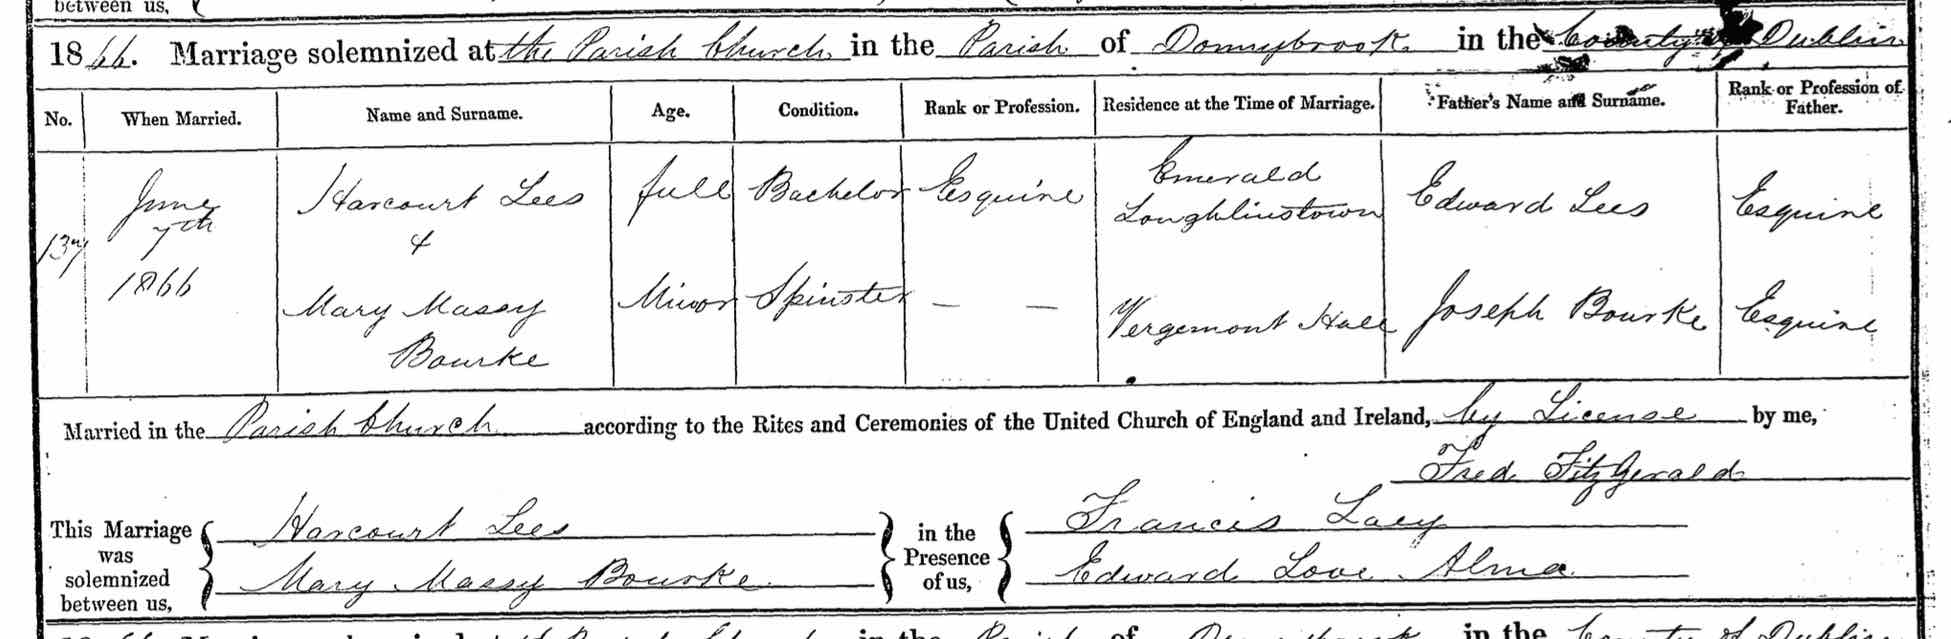 between us,
1866. Marriage solemnized at the Parish Church in the Parish of Donnybrook in the County of Dublin
No. When Married. Name and Surname. Age. Condition. Rank or Profession. Residence at the Time of Marriage. Father's Name and Surname. Rank or Profession of Father.
137 June 7th 1866 Harcourt Lees full Bachelor Esquire Emerald Loughlinstown Edward Lees Esquire
&
Mary Massy Bourke Minor Spinster — — Vergemont Hall Joseph Bourke Esquire
Married in the Parish Church according to the Rites and Ceremonies of the United Church of England and Ireland, by License by me,
Fred FitzGerald
This Marriage was solemnized between us, { Harcourt Lees
Mary Massy Bourke } in the Presence of us, { Francis Lacy
Edward Love Alma
1866 Marriage solemnized at the Parish Church in the Parish of Donnybrook in the County of Dublin